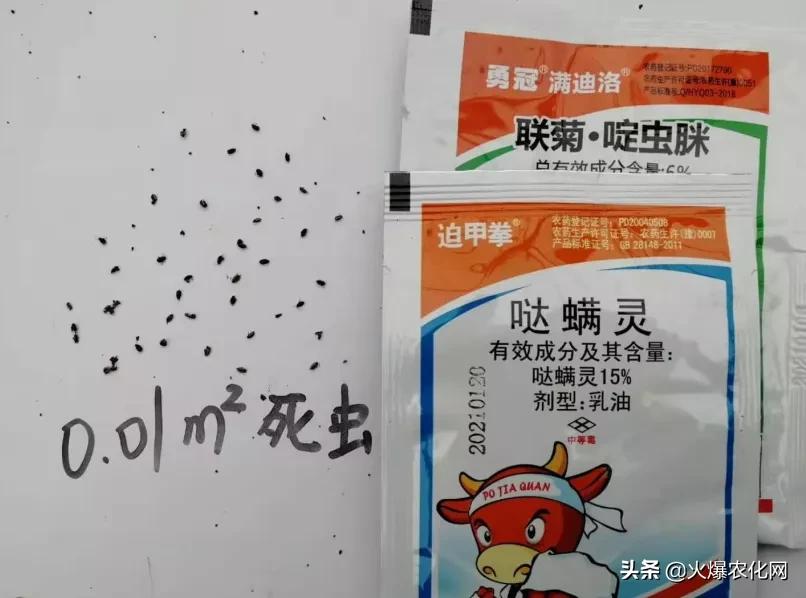 勇冠® 满迪洛®
农药登记证号:PD20172790
产品标准号:Q/HYQ03-2018
联菊·啶虫脒
总有效成分含量:6%
迫甲拳®
农药登记证号: PD20040508
农药生产许可证号: 农药生许(豫)0007
产品标准证号: GB 28148-2011
哒螨灵
有效成分及其含量:
哒螨灵15%
剂型:乳油
中等毒
20210120
PO JIA QUAN
0.01m² 死虫
头条 @火爆农化网